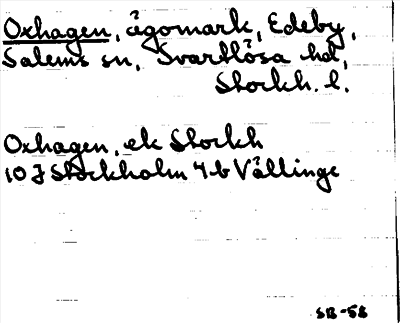 Oxhagen, ägomark, Edeby,
Salems sn, Svartlösa hd,
Stockh. l.
Oxhagen, ek Stockh
10 J Stockholm 4 b Vällinge
SB-58